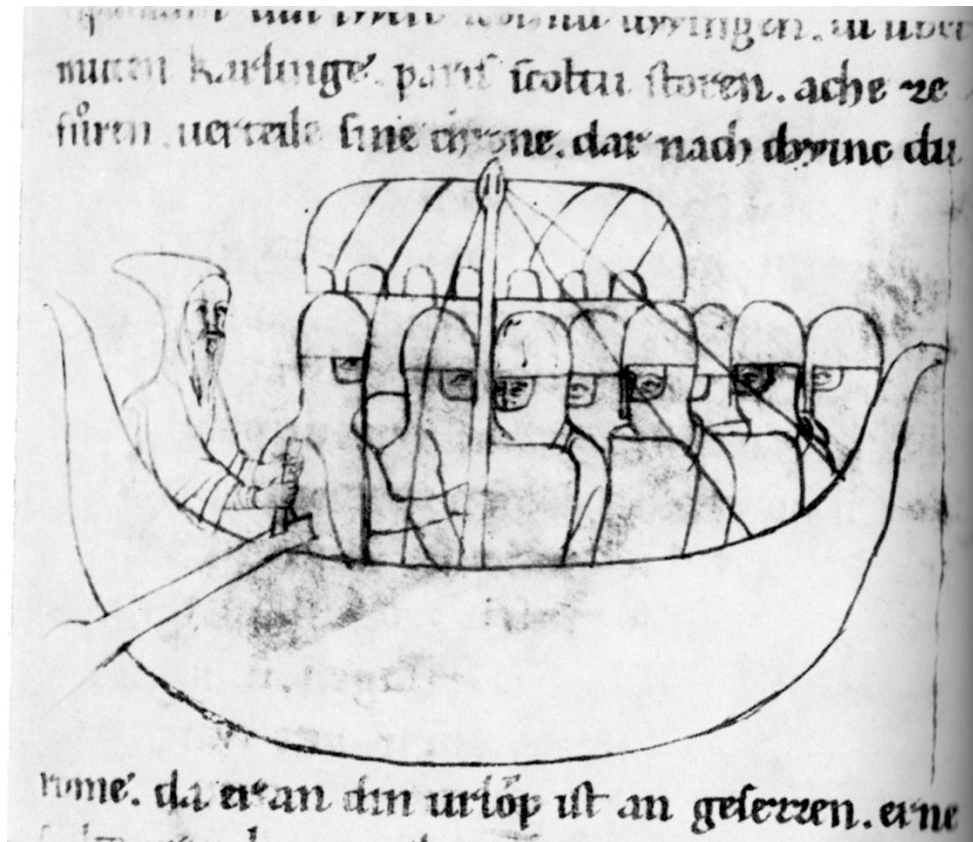 dwingen. di uber
muten karlinge. pariſ ſcoltu ſtoren. ache ze
fůren. uerteile ſine chrone. dar nach dwinc du
rome. da er an din urlǒp iſt an geſezzen. erne